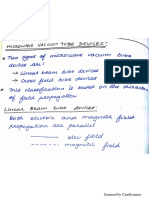 MICROWAVE VACUUM TUBE DEVICES:
• Two types of microwave vacuum tube
devices are:
→ Linear beam tube devices
→ Cross field tube devices
• This classification is based on the direction
of field propagation
LINEAR BEAM TUBE DEVICES:
Both electric and magnetic field
propagation are parallel
elec field
magnetic field
Scanned by CamScanner